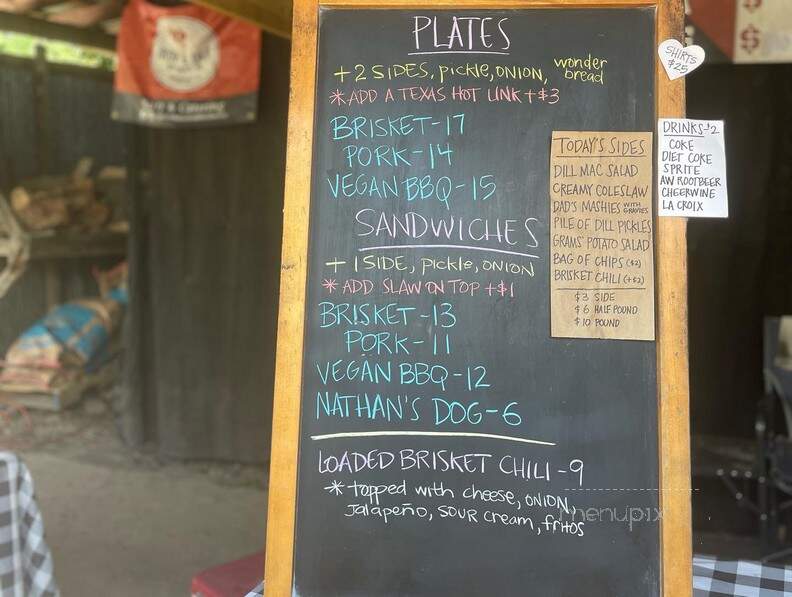 PLATES
+ 2 SIDES, pickle, ONION, wonder bread
* ADD A TEXAS HOT LINK + $3
BRISKET - 17
PORK - 14
VEGAN BBQ - 15
SANDWICHES
+ 1 SIDE, pickle, ONION
* ADD SLAW ON TOP + $1
BRISKET - 13
PORK - 11
VEGAN BBQ - 12
NATHAN'S DOG - 6
LOADED BRISKET CHILI - 9
* topped with cheese, ONION,
Jalapeño, SOUR cream, fritos
TODAY'S SIDES
DILL MAC SALAD
CREAMY COLESLAW
DAD'S MASHIES WITH GRAVIES
PILE OF DILL PICKLES
GRAMS' POTATO SALAD
BAG OF CHIPS ($2)
BRISKET CHILI (+$2)
$3 SIDE
$6 HALF POUND
$10 POUND
SHIRTS
$25
DRINKS - $2
COKE
DIET COKE
SPRITE
AW ROOTBEER
CHEERWINE
LA CROIX
$
$
menupix